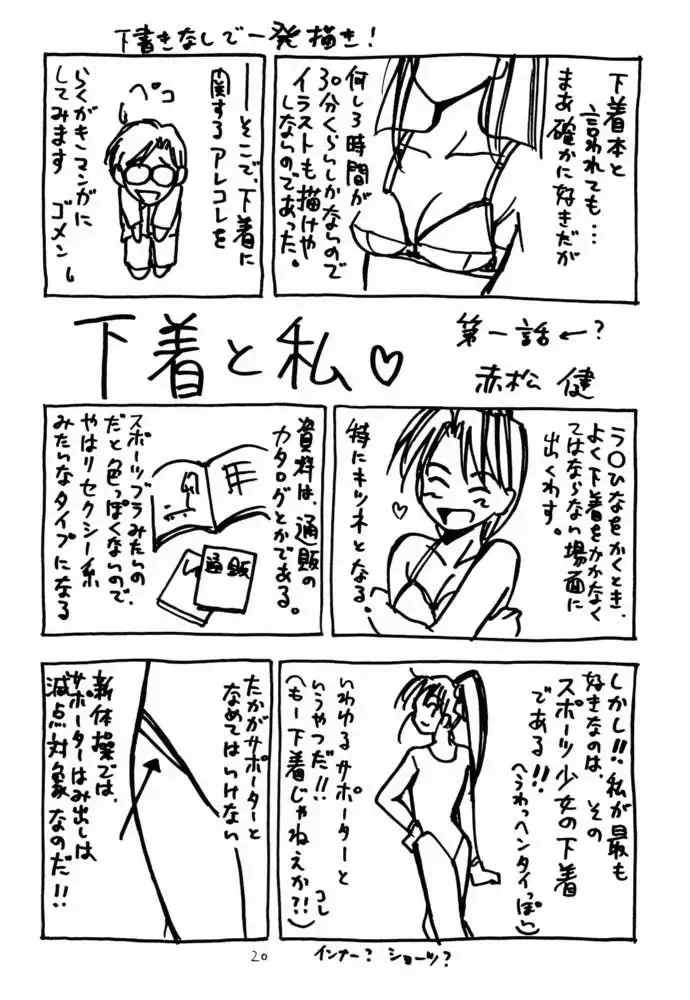 下書きなしで一発描き!
下着本と
言われても…
まあ確かに好きだが
何しろ時間が
30分くらいしかないので
イラストも描けや
しないのであった。
――そこで、下着に
関するアレコレを
ペコ
らくがきマンガに
してみます
ゴメン
下着と私♡
第一話←?
赤松 健
ラ○ひなをかくとき、
よく下着をかかなく
てはならない場面に
出くわす。
特にキツネとなる。
資料は、通販の
カタログとかである。
通販
スポーツブラみたいの
だと色っぽくないので、
やはりセクシー系
みたいなタイプになる
しかし!!私が最も
好きなのは、その
スポーツ少女の下着
である!!
(うわっヘンタイっぽい)
いわゆるサポーターと
いうやつだ!!
コレ
(もー下着じゃねえか?!)
たかがサポーターと
なめてはいけない
新体操では、
サポーターはみ出しは
減点対象なのだ!!
20
インナー? ショーツ?